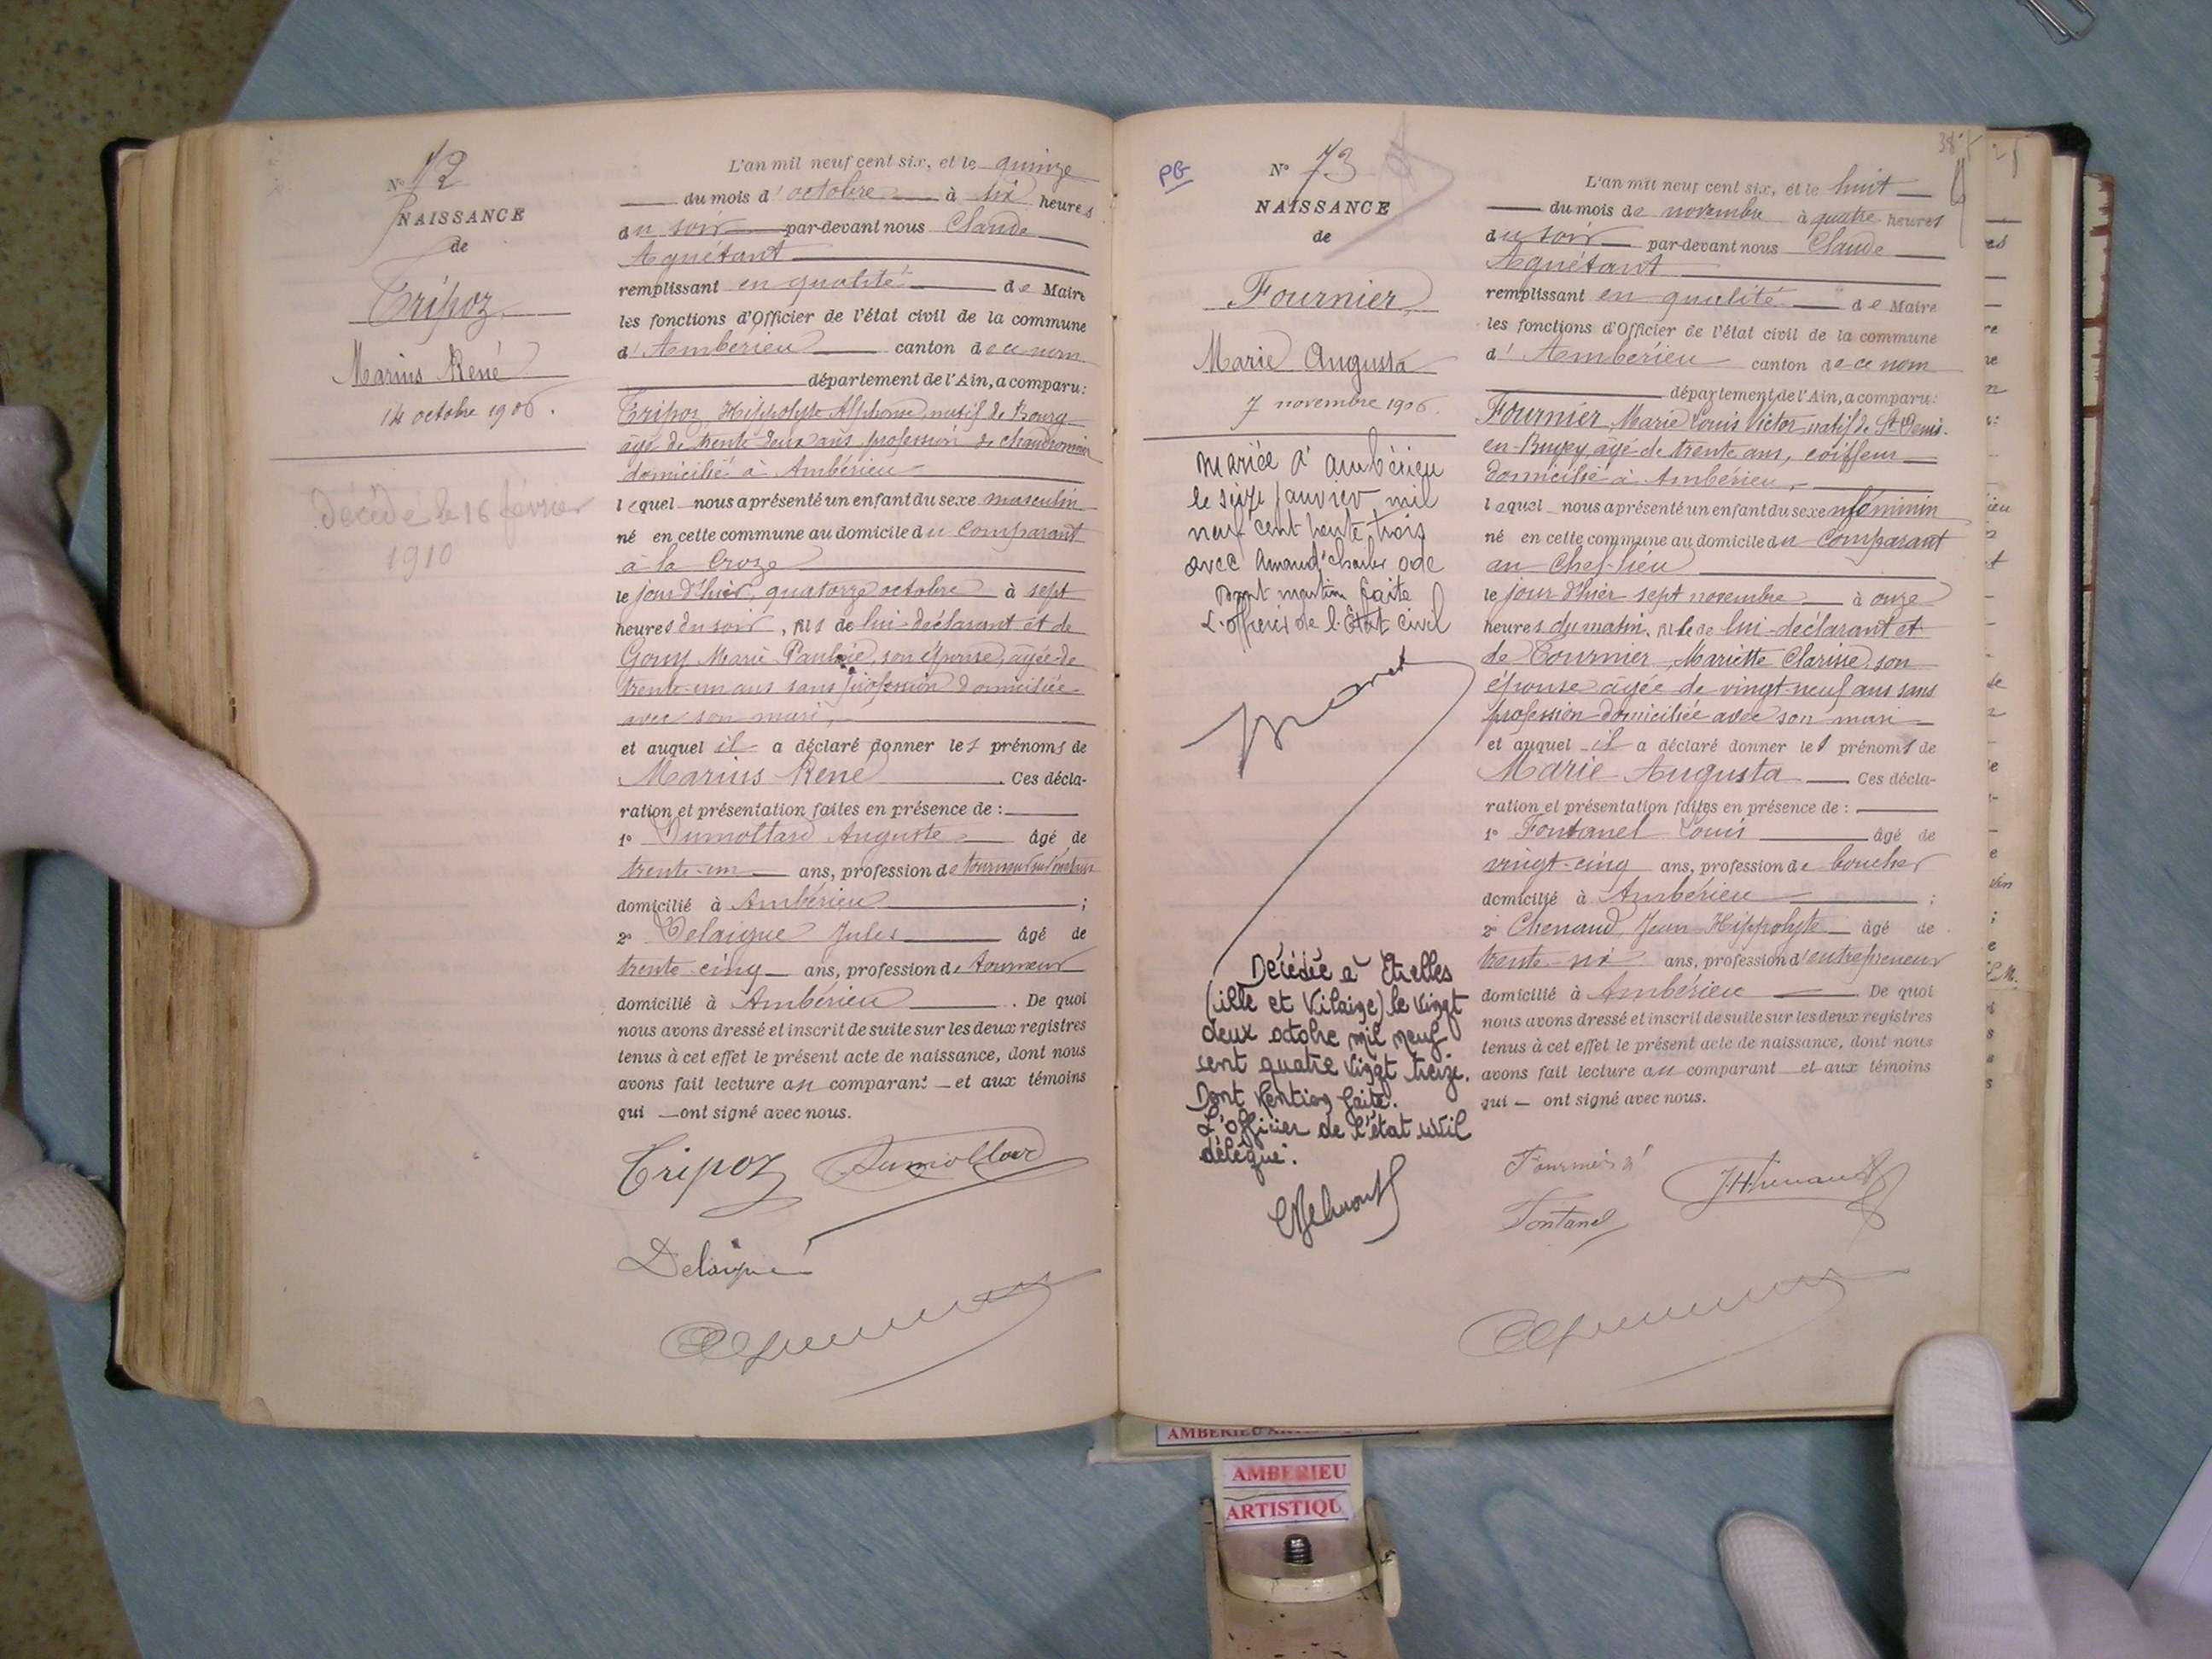 N° 72
NAISSANCE
de
Tripoz
Marius René
14 octobre 1906.
décédé le 16 février
1910
L'an mil neuf cent six, et le quinze
du mois d'octobre à six heures
du soir par-devant nous Claude
Aguétant
remplissant en qualité de Maire
les fonctions d'Officier de l'état civil de la commune
d'Ambérieu canton de ce nom
département de l'Ain, a comparu:
Tripoz, Hippolyte Alphonse, natif de Bourg
âgé de trente deux ans, profession de chaudronnier
domicilié à Ambérieu
lequel nous a présenté un enfant du sexe masculin
né en cette commune au domicile du comparant
à la Croze
le jour d'hier, quatorze octobre à sept
heures du soir, fils de lui-déclarant et de
Gouy Marie Pauline, son épouse, âgée de
trente-un ans sans profession domiciliée
avec son mari,
et auquel il a déclaré donner les prénoms de
Marius René. Ces décla-
ration et présentation faites en présence de :
1° Dumollard Auguste âgé de
trente-un ans, profession de tourneur sur métaux
domicilié à Ambérieu ;
2° Delaigue Jules âgé de
trente-cinq ans, profession de tourneur
domicilié à Ambérieu. De quoi
nous avons dressé et inscrit de suite sur les deux registres
tenus à cet effet le présent acte de naissance, dont nous
avons fait lecture au comparant et aux témoins
qui ont signé avec nous.
Tripoz Dumollard
Delaigue
PG
N° 73
NAISSANCE
de
Fournier
Marie Augusta
7 novembre 1906.
Mariée à Ambérieu
le seize janvier mil
neuf cent trente trois
avec Amand Charles Ode
Dont mention faite
L'officier de l'Etat civil
Décédée à Etrelles
(ille et Vilaine) le vingt
deux octobre mil neuf
cent quatre vingt treize.
Dont Mention faite.
L'officier de l'état civil
délégué.
L'an mil neuf cent six, et le huit
du mois de novembre à quatre heures
du soir par-devant nous Claude
Aguétant
remplissant en qualité de Maire
les fonctions d'Officier de l'état civil de la commune
d'Ambérieu canton de ce nom
département de l'Ain, a comparu:
Fournier Marie Louis Victor natif de St Denis-
en-Bugey, âgé de trente ans, coiffeur
domicilié à Ambérieu,
lequel nous a présenté un enfant du sexe féminin
né en cette commune au domicile du comparant
au Chef-lieu
le jour d'hier sept novembre à onze
heures du matin, fille de lui-déclarant et
de Tournier, Mariette Clarisse, son
épouse âgée de vingt-neuf ans sans
profession domiciliée avec son mari
et auquel il a déclaré donner les prénoms de
Marie Augusta Ces décla-
ration et présentation faites en présence de :
1° Fontanel Louis âgé de
vingt-cinq ans, profession de boucher
domicilié à Ambérieu ;
2° Chenaud, Jean-Hippolyte âgé de
trente-six ans, profession d'entrepreneur
domicilié à Ambérieu De quoi
nous avons dressé et inscrit de suite sur les deux registres
tenus à cet effet le présent acte de naissance, dont nous
avons fait lecture au comparant et aux témoins
qui ont signé avec nous.
Fournier
Fontanel
AMBERIEU
AMBERIEU
ARTISTIQU